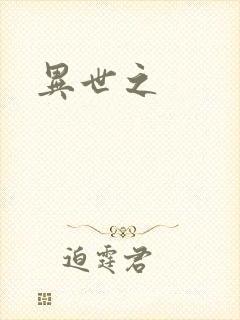 異世之
迫霆君